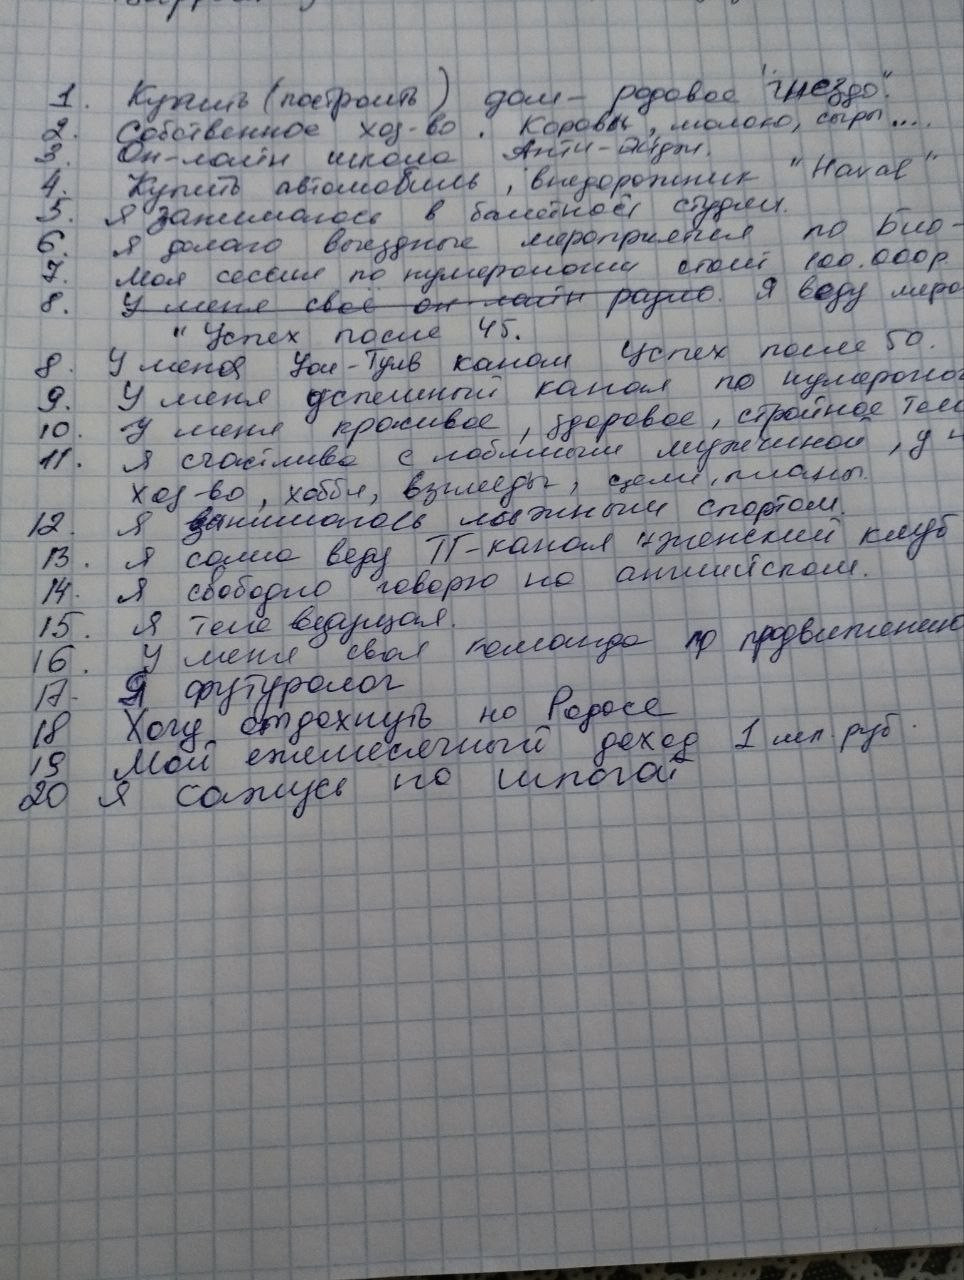 1. Купить (построить) дом - родовое "гнездо".
2. Собственное хоз-во. Коровы, молоко, сыры....
3. Он-лайн школа Анти-Эйдж.
4. Купить автомобиль, внедорожник "Haval"
5. Я занимаюсь в балетной студии.
6. Я делаю выездные мероприятия по Био-
7. Моя сессия по нумерологии стоит 100.000р.
8. У меня своё он-лайн радио. Я веду меро
" Успех после 45.
8. У меня Ютуб канал Успех после 50.
9. У меня успешный канал по нумеролог
10. У меня красивое, здоровое, стройное тел
11. Я счастлива с любимым мужчиной, у н
хоз-во, хобби, взгляды, цели, планы.
12. Я занимаюсь лыжным спортом.
13. Я сама веду ТГ-канал +женский клуб
14. Я свободно говорю на английском.
15. Я теле ведущая.
16. У меня своя команда пр продвижению
17. Я футуролог
18 Хочу отдохнуть на Родосе
19 Мой ежемесячный доход 1 мл. руб.
20 Я сажусь на шпагат